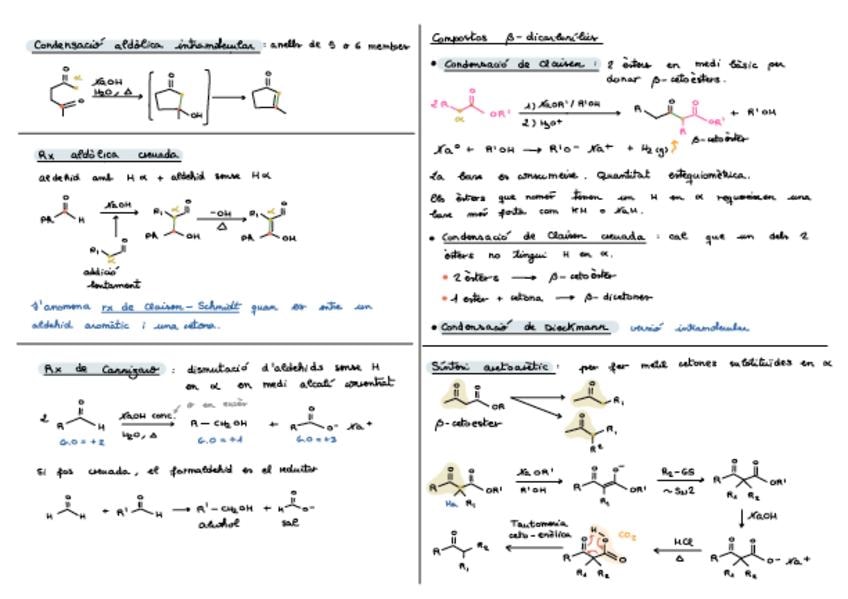 Condensació aldòlica intramolecular : anells de 5 o 6 membres
O
α
NaOH
H2O, Δ
O
OH
O
Rx aldòlica creuada
aldehid amb Hα + aldehid sense Hα
O
Ph H
NaOH
R1 α O
Ph OH
-OH
Δ
R1 α O
Ph OH
R1 O
α
addició
lentament
S'anomena rx de Claisen-Schmidt quan es entre un
aldehid aromàtic i una cetona.
Rx de Cannizaro : dismutació d'aldehids sense H
en α en medi alcalí concentrat
o en excés
2 R H
NaOH conc.
H2O, Δ
R-CH2OH + R O- Na+
G.O = +2 G.O = +1 G.O = +3
Si fos creuada, el formaldehid es el reductor
H H + R' H → R'-CH2OH + H O-
alcohol sal
Compostos β-dicarbonílics
• Condensació de Claisen : 2 èsters en medi bàsic per
donar β-cetoèsters.
2 R α O OR'
1) NaOR' / R'OH
2) H3O+
R O O OR' + R'OH
R β-cetoèster
Na0 + R'OH → R'O- Na+ + H2(g)
La base es consumeix. Quantitat estequiomètrica.
Els èsters que només tenen un H en α requereixen una
base més forta com KH o NaH.
• Condensació de Claisen creuada : cal que un dels 2
èsters no tingui H en α.
• 2 èsters → β-cetoèster
• 1 ester + cetona → β-dicetones
• Condensació de Dieckmann versió intramolecular
Síntesi acetoacètic : per fer metil cetones substituïdes en α
O O OR
β-cetoester
O R1
O R1
R2
R O O OR'
Hα R1
NaOR'
R'OH
R O O- OR'
R1
R2-GS
~SN2
R O O OR'
R1 R2
NaOH
R O O O- Na+
R1 R2
HCl
Δ
H O CO2
R O O
R1 R2
Tautomeria
ceto-enòlica
R O R2
R1